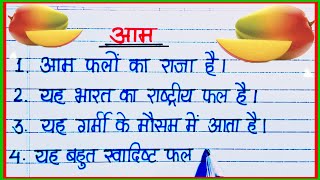 आम
1. आम फलों का राजा है।
2. यह भारत का राष्ट्रीय फल है।
3. यह गर्मी के मौसम में आता है।
4. यह बहुत स्वादिष्ट फल